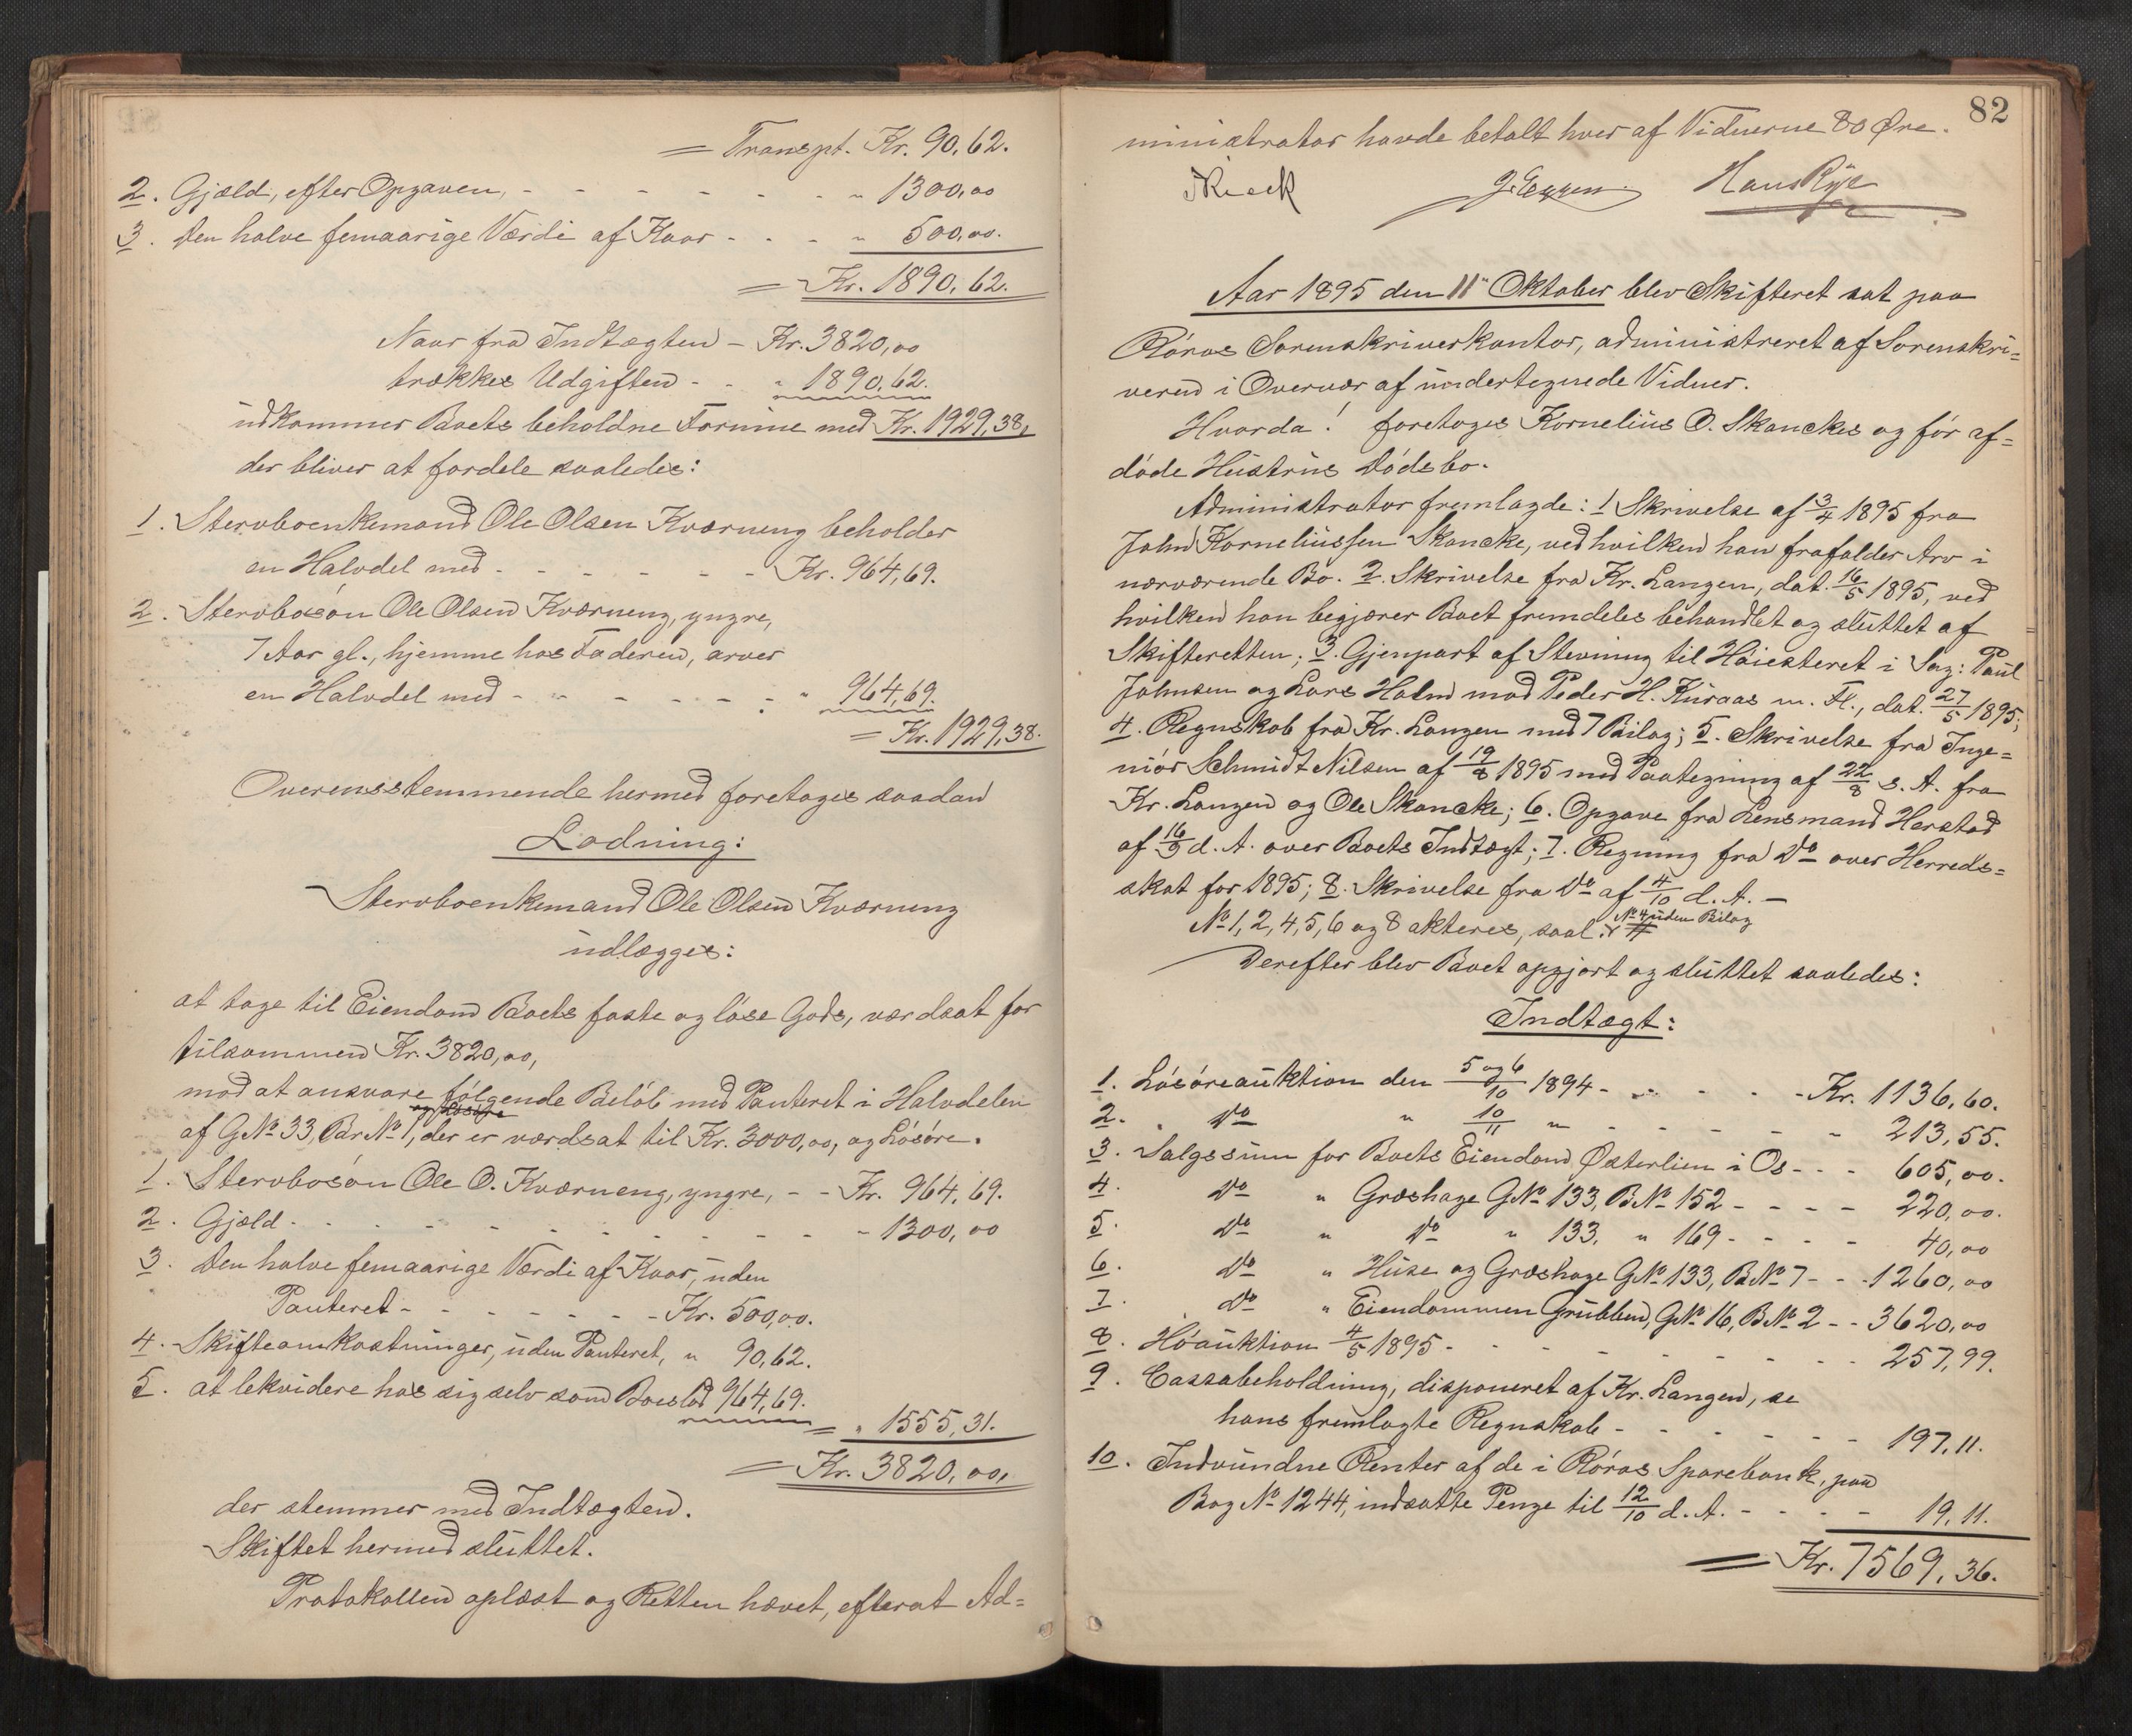 = Transpt. Kr. 90,62.
2. Gjæld, efter Opgaven, - - - - - - " 1300,00
3. Den halve femaarige Værdi af Kaar - - - " 500,00.
= Kr. 1890,62.
Naar fra Indtægten - Kr. 3820,00
trækkes Udgiften - - " 1890,62.
udkommer Boets beholdne Formue med Kr. 1929,38,
der bliver at fordele saaledes:
1. Stervboenkemand Ole Olsen Kværneng beholder
en Halvdel med - - - - - - - Kr. 964,69.
2. Stervbosøn Ole Olsen Kværneng, yngre,
7 Aar gl., hjemme hos Faderen, arver
en Halvdel med - - - - - - - " 964,69.
= Kr. 1929,38.
Overensstemmende hermed foretages saadan
Lodning:
Stervboenkemand Ole Olsen Kværneng
udlægges:
at tage til Eiendom Boets faste og løse Gods, værdsat for
tilsammen Kr. 3820,00,
mod at ansvare følgende Beløb med Panteret i Halvdelen
og Løsøre
af GNo 33, BrNo 1, der er værdsat til Kr. 3000,00, og Løsøre.
1. Stervbosøn Ole O. Kværneng, yngre, - - Kr. 964,69.
2. Gjæld - - - - - - - - - - - 1300,00
3. Den halve femaarige Værdi af Kaar, uden
Panteret - - - - - - - Kr. 500,00.
4. Skifteomkostninger, uden Panteret, " 90,62.
5. at lekvidere hos sig selv som Boeslod 964,69.
= " 1555,31.
= Kr. 3820,00,
der stemmer med Indtægten.
Skiftet hermed sluttet.
Protokollen oplæst og Retten hævet, efterat Ad=
82
ministrator havde betalt hver af Vidnerne 80 Øre.
Hans Rye
Aar 1895 den 11te Oktober blev Skifteret sat paa
Røros Sorenskriverkontor, administreret af Sorenskri=
veren i Overvær af undertegnede Vidner.
Hvorda! foretages Kornelius O. Skanckes og før af=
døde Hustrus Dødsbo.
Administrator fremlagde: 1 Skrivelse af 3/4 1895 fra
John Korneliussen Skancke, ved hvilken han frafalder Arv i
nærværende Bo. 2. Skrivelse fra Kr. Langen, dat. 16/5 1895, ved
hvilken han begjærer Boet fremdeles behandlet og sluttet af
Skifteretten; 3. Gjenpart af Stevning til Høiesteret i Sag: Paul
Johnsen og Lars Holm mod Peder H. Kuraas m. Fl., dat. 27/5 1895;
4. Regnskab fra Kr. Langen med 7 Bilag; 5. Skrivelse fra Inge=
niør Schmidt Nilsen af 19/8 1895 med Paategning af 22/8 s. A. fra
Kr. Langen og Ole Skancke; 6. Opgave fra Lensmand Herstad
af 16/9 d. A. over Boets Indtægt; 7. Regning fra Do over Herreds=
skat for 1895; 8. Skrivelse fra Do af 4/10 d. A. —
No 4 uden Bilag
No 1, 2, 4, 5, 6 og 8 akteres, saal.
Derefter blev Boet opgjort og sluttet saaledes:
Indtægt:
1. Løsøreauktion den 5 og 6/10 1894 - - - - Kr. 1136,60.
2. Do " 10/11 " - - - - - - 213,55.
3. Salgssum for Boets Eiendom Østerlien i Os - - - 605,00.
4. Do " Græshage GNo 133, BNo 152 - - - - 220,00.
5. Do " Do " 133, " 169 - - - - 40,00
6. Do " Huse og Græshage GNo 133, BNo 7 - - - 1260,00
7. Do " Eiendommen Grubben, GNo 16, BNo 2 - - 3620,00
8. Høauktion 4/5 1895 - - - - - - - - 257,99.
9. Cassabeholdning, disponeret af Kr. Langen, se
hans fremlagte Regnskab - - - - - - 197,11.
10. Indvundne Renter af de i Røros Sparebank, paa
Bog No 1244, indsatte Penge til 12/10 d. A. - - - - 19,11.
= Kr. 7569,36.